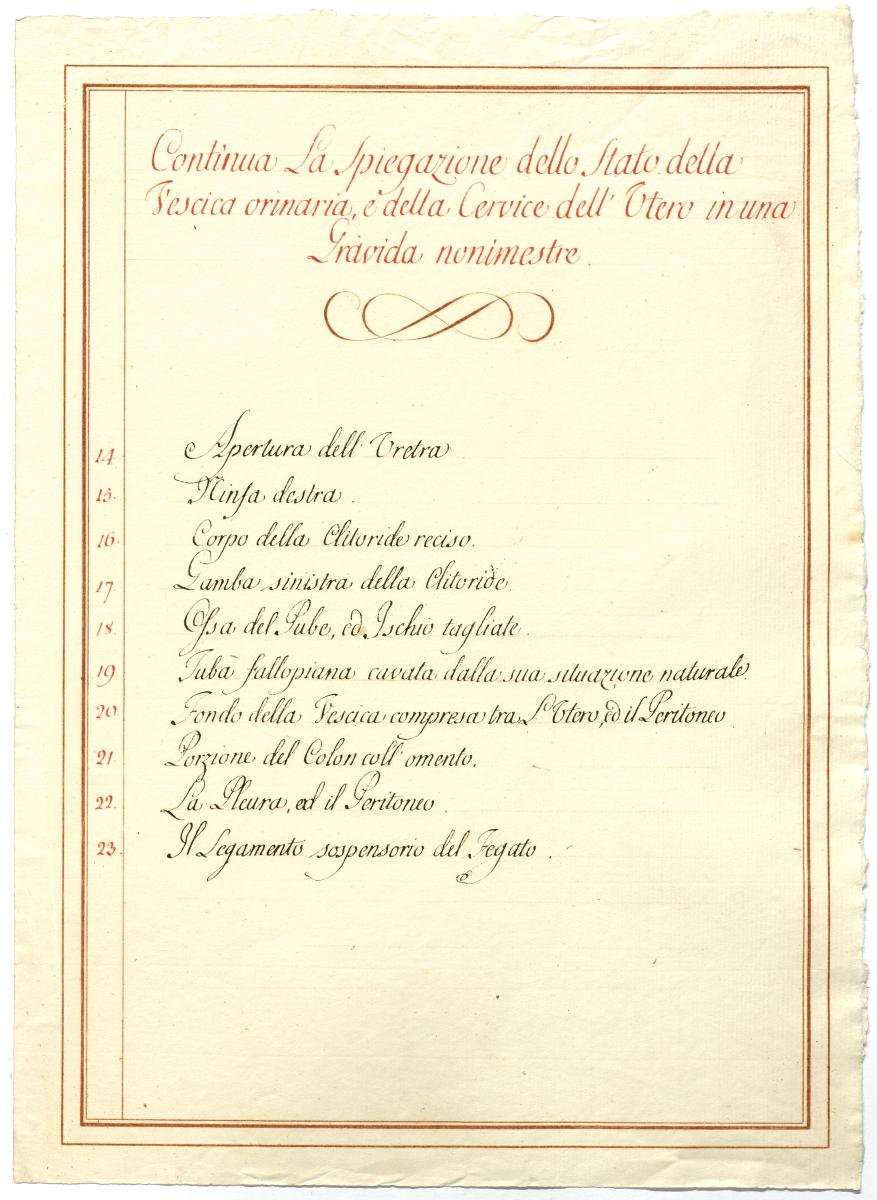 Continua La Spiegazione dello Stato della
Vescica orinaria, e della Cervice dell' Utero in una
Gravida nonimestre.
14 Apertura dell' Uretra
15. Ninfa destra.
16. Corpo della Clitoride reciso.
17. Gamba sinistra della Clitoride
18. Ossa del Pube, ed Ischio tagliate.
19 Tuba fallopiana cavata dalla sua situazione naturale.
20 Fondo della Vescica compresa tra L'Utero, ed il Peritoneo
21. Porzione del Colon coll' omento.
22. La Pleura, ed il Peritoneo.
23. Il Legamento sospensorio del Fegato.